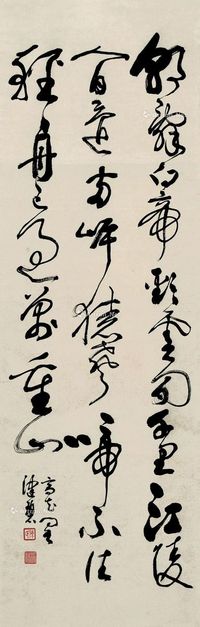 朝辭白帝彩雲間千里江陵
一日還兩岸猿聲啼不住
輕舟已過萬重山